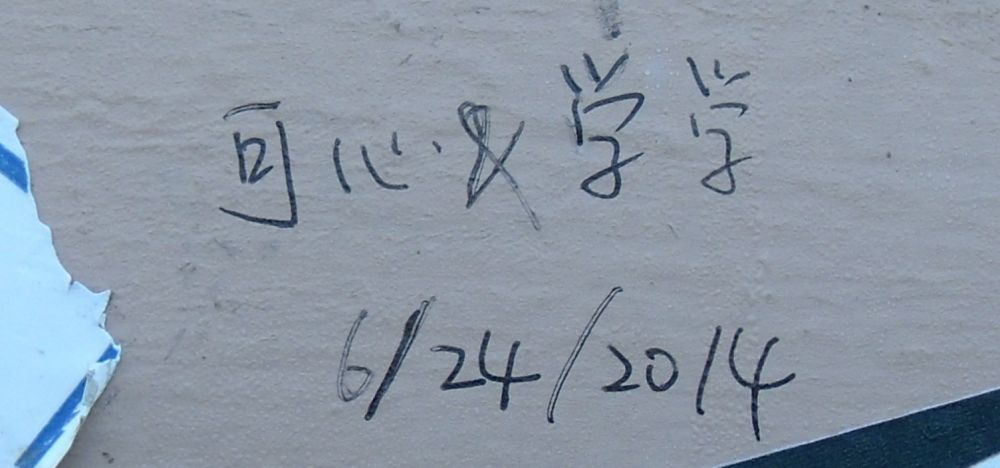 可心&学学
6/24/2014